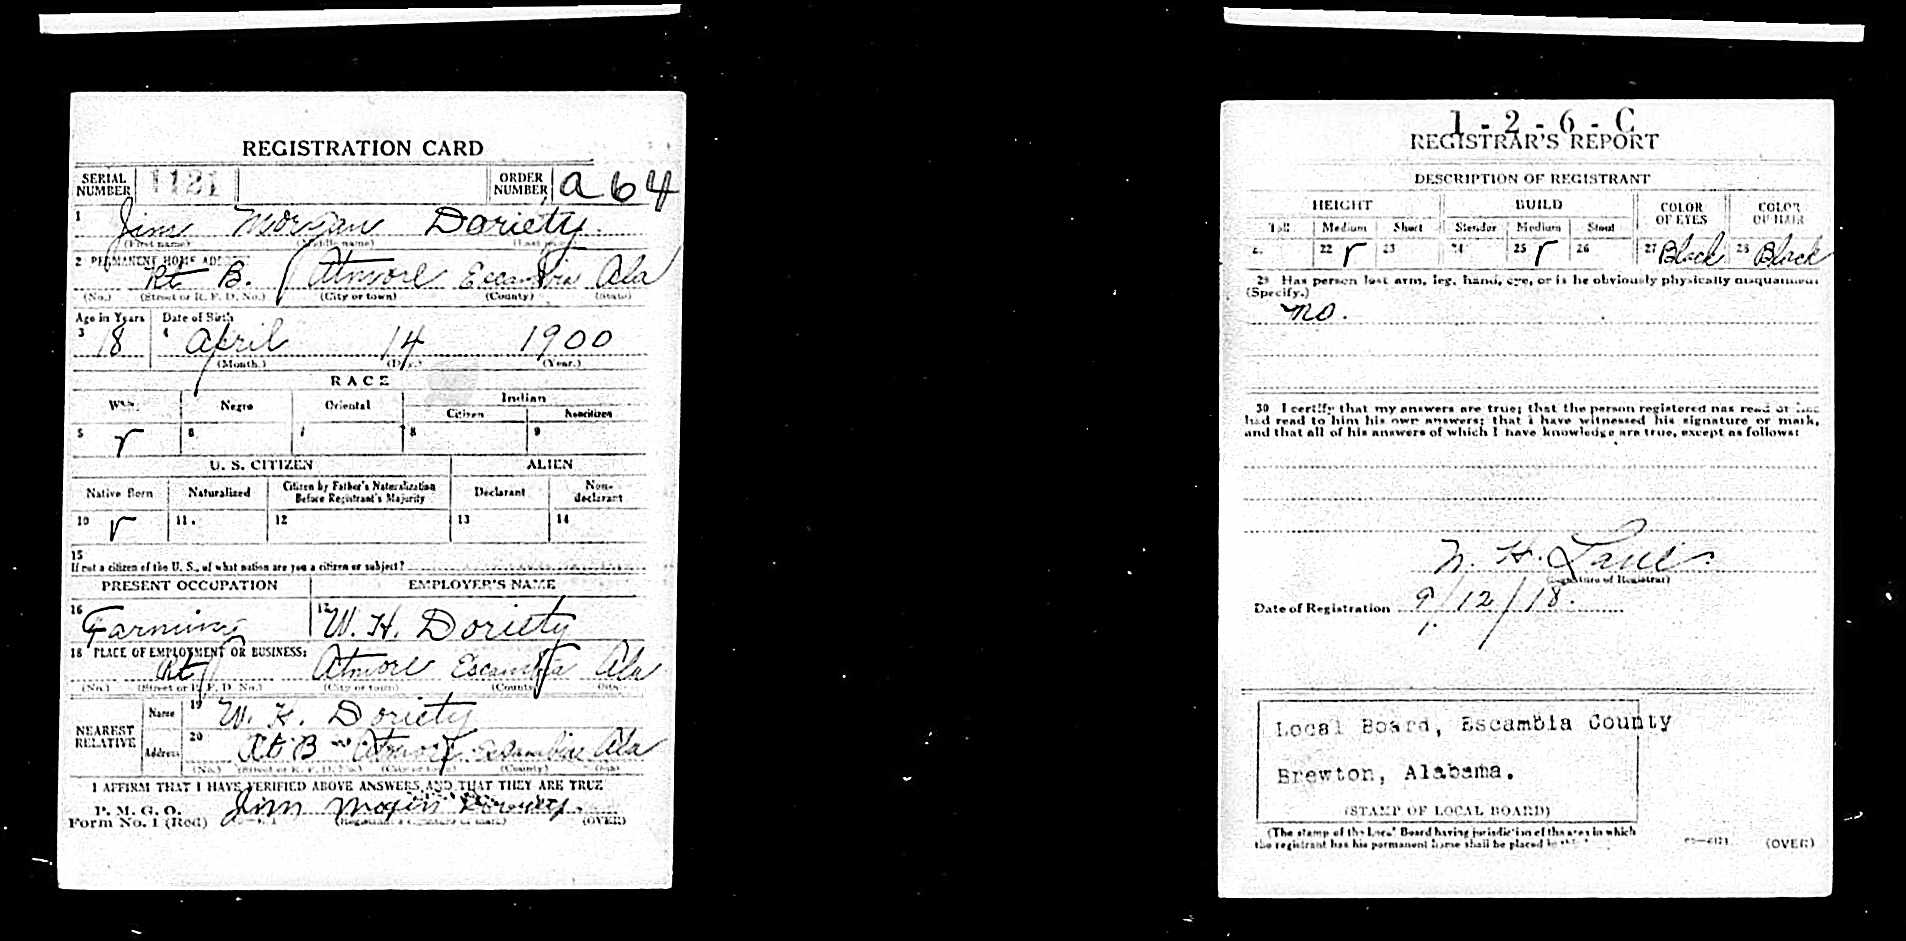 REGISTRATION CARD
SERIAL NUMBER 1121 ORDER NUMBER a 64
1 Jim Morgan Doriety
(First name) (Middle name) (Last name)
2 PERMANENT HOME ADDRESS:
Rt B. Atmore Escambia Ala
(No.) (Street or R. F. D. No.) (City or town) (County) (State)
Age in Years Date of Birth
3 18 4 April 14 1900
(Month.) (Day.) (Year.)
RACE
White Negro Oriental Indian
Citizen Noncitizen
5 r 6 7 8 9
U. S. CITIZEN ALIEN
Native Born Naturalized Citizen by Father's Naturalization Before Registrant's Majority Declarant Non-declarant
10 r 11 12 13 14
15
If not a citizen of the U. S., of what nation are you a citizen or subject?
PRESENT OCCUPATION EMPLOYER'S NAME
16 Farming 17 W. H. Doriety
18 PLACE OF EMPLOYMENT OR BUSINESS:
Rt Atmore Escambia Ala
(No.) (Street or R. F. D. No.) (City or town) (County)
NEAREST RELATIVE Name 19 W. H. Doriety
Address 20 Rt B Atmore Escambia Ala
(No.) (Street or R. F. D. No.) (City or town) (County)
I AFFIRM THAT I HAVE VERIFIED ABOVE ANSWERS AND THAT THEY ARE TRUE
P. M. G. O.
Form No. 1 (Red) Jim
(Registrant's signature or mark) (OVER)
1-2-6-C
REGISTRAR'S REPORT
DESCRIPTION OF REGISTRANT
HEIGHT BUILD COLOR OF EYES COLOR OF HAIR
Tall Medium Short Slender Medium Stout
21 22 r 23 24 25 r 26 27 Black 28 Black
29 Has person lost arm, leg, hand, eye, or is he obviously physically disqualified?
(Specify.)
no.
30 I certify that my answers are true; that the person registered has read or has
had read to him his own answers; that I have witnessed his signature or mark,
and that all of his answers of which I have knowledge are true, except as follows:
H.
(Signature of Registrar)
Date of Registration 9/12/18.
Local Board, Escambia County
Brewton, Alabama.
(STAMP OF LOCAL BOARD)
(The stamp of the Local Board having jurisdiction of the area in which
the registrant has his permanent home shall be placed in this
(OVER)